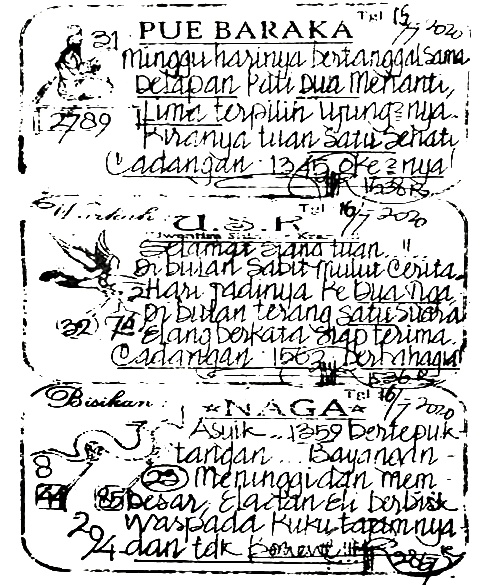 PUE BARAKA
Tgl 15/7-2020
31
Minggu harinya bertanggal sama
Delapan Pati Dua Menanti,
2789
Lima terpilin ujung²nya.
Kiranya tuan Satu Sehati
Cadangan 1345 oke²nya!
U.S.K
Tgl 16/7-2020
Selamat siang tuan.."
Di bulan Sabit mulut cerita
Hari jadinya ke Dua Tiga
(32)
Di bulan terang Satu Suara
Elang berkata Siap terima.
Cadangan 1562 Berbahagia
Bisikan
NAGA
Tgl 16/7-2020
Asyik...1359 bertepuk
tangan... Bayangan
8
(23) Meninggi dan mem-
44
85
besar, Elactan Eli berbisik
Waspada Kuku tajamnya
294
dan tdk